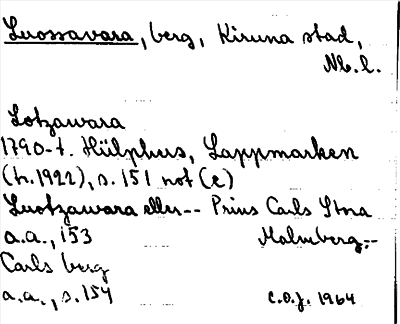 Luossavara, berg, Kiruna stad,
Nb. l.
Lotzawara
1790-t. Hülphers, Lappmarken
(tr. 1922), s. 151 not (e)
Luotzawara eller -- Prins Carls Stora
a.a., 153 Malmberg --
Carls berg
a.a., s. 154 C.O.J. 1964